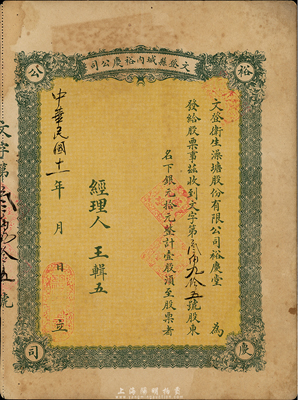 文登縣城內裕慶公司
裕
慶
公
司
文登衛生澡塘股份有限公司裕慶堂 為
發給股票事茲收到文字第貳佰九拾五號股東
名下銀元拾元整計壹股須至股票者
經理人 王輯五
中華民國十一年 月 日 立
文字第貳佰九拾五號
上海陽明拍賣